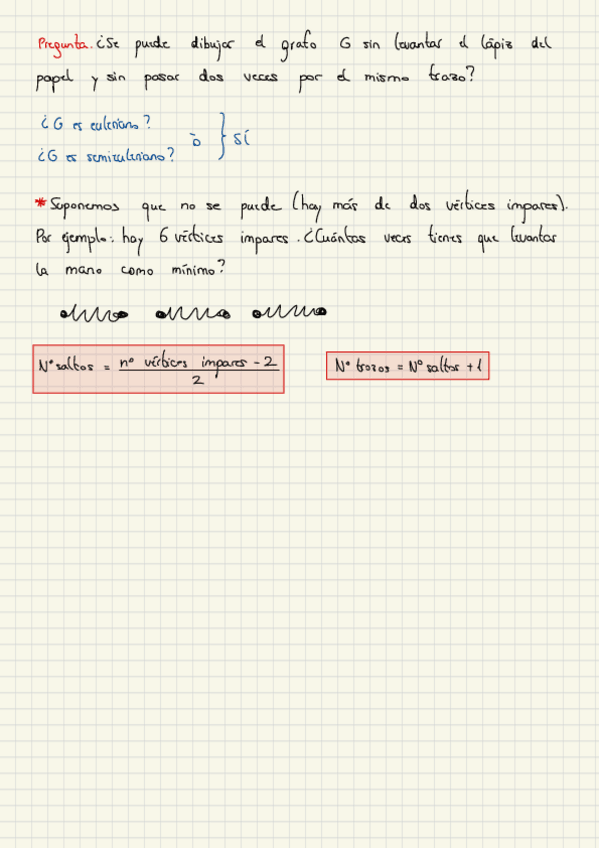 Pregunta. ¿Se puede dibujar el grafo G sin levantar el lápiz del
papel y sin pasar dos veces por el mismo trazo?
¿G es euleriano?
ò } SÍ
¿G es semieuleriano?
* Suponemos que no se puede (hay más de dos vértices impares).
Por ejemplo: hay 6 vértices impares. ¿Cuántas veces tienes que levantar
la mano como mínimo?
Nº saltos = nº vértices impares - 2 / 2
Nº trozos = Nº saltos + 1